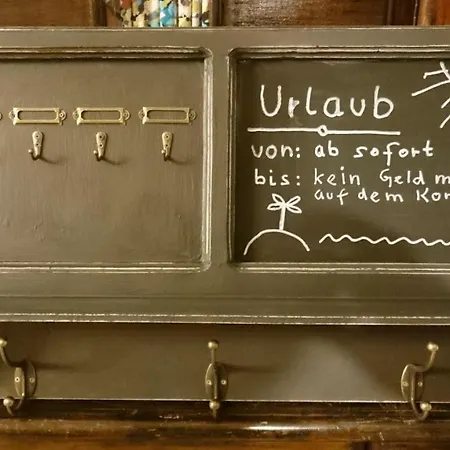 Urlaub
von: ab sofort
bis: kein Geld
auf dem